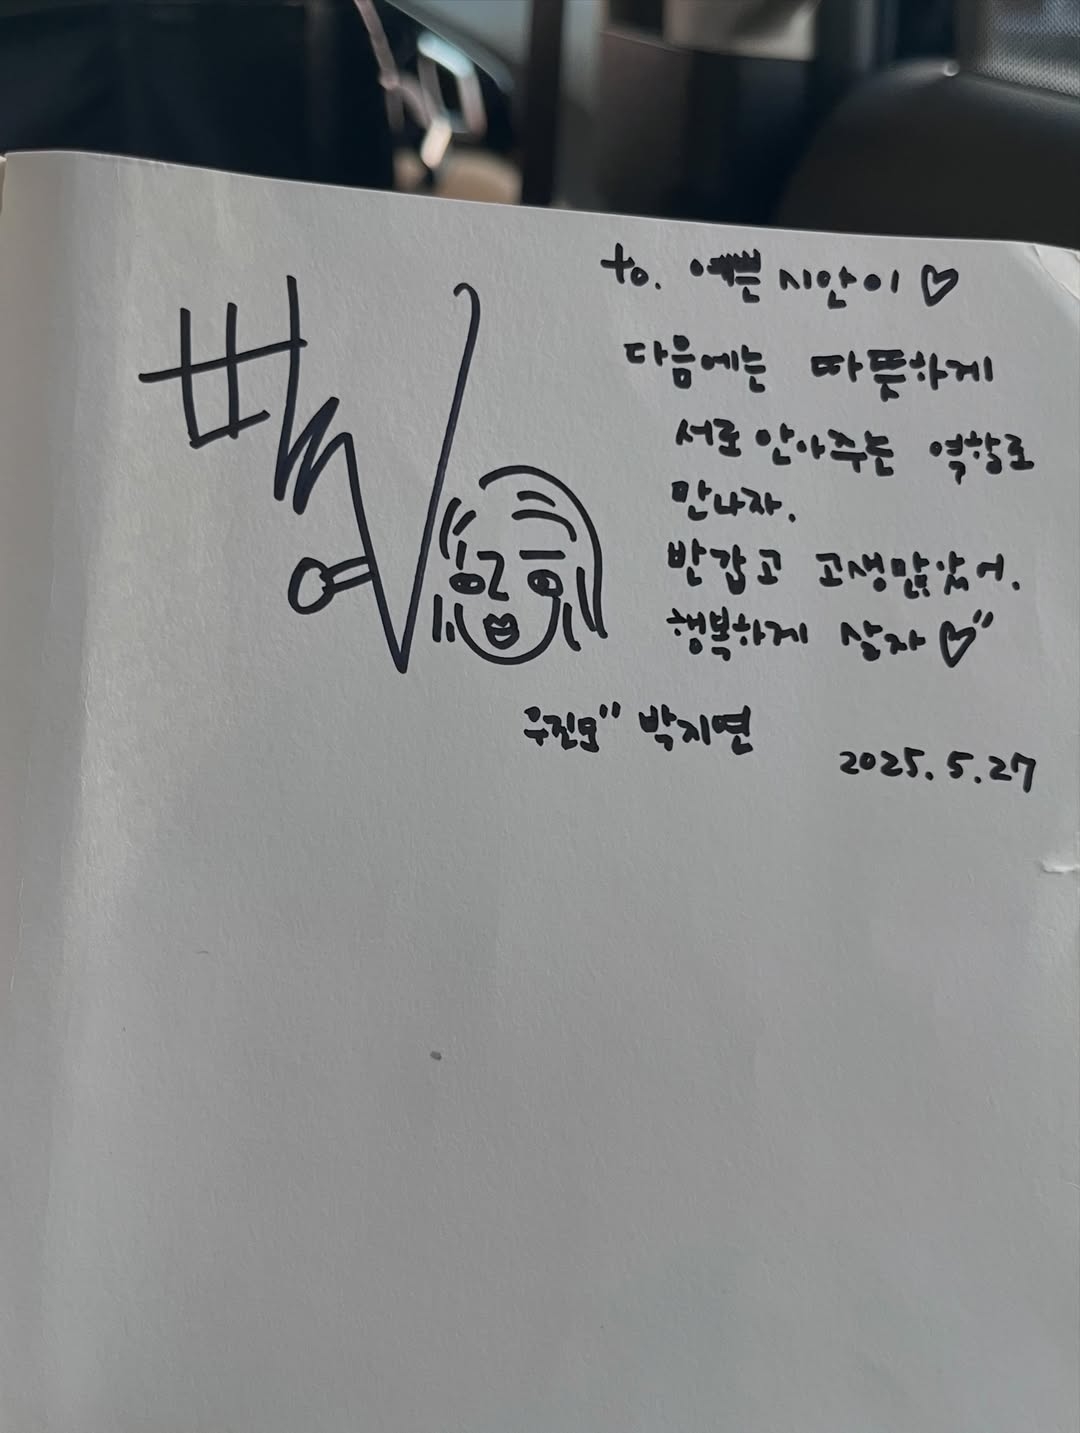 to. 예쁜 시안이 ♡
다음에는 따뜻하게
서로 안아주는 역할로
만나자.
반갑고 고생많았어.
행복하게 살자 ♡"
우진모" 박지연
2025.5.27